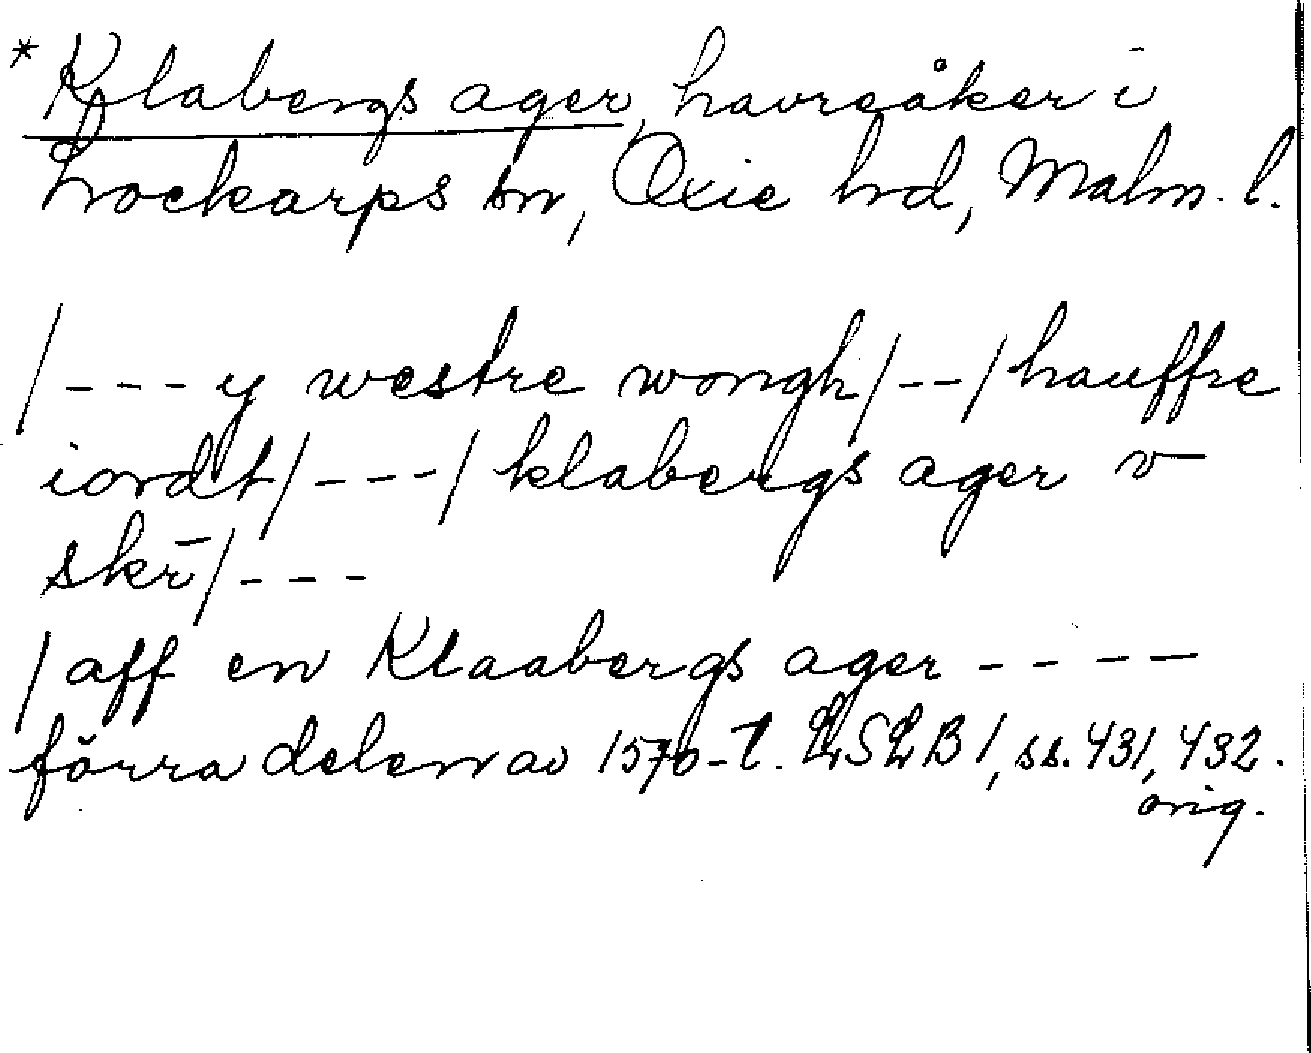 * Klabergs ager, havreåker i
Lockarps sn, Oxie hd, Malm. l.
/ - - - y westre wongh / - - / hauffre
iordt / - - - / klabergs ager v
skr̄ / - - -
/ aff en Klaabergs ager - - - -
förra delen av 1570-t. LSLB 1, ss. 431, 432.
orig.